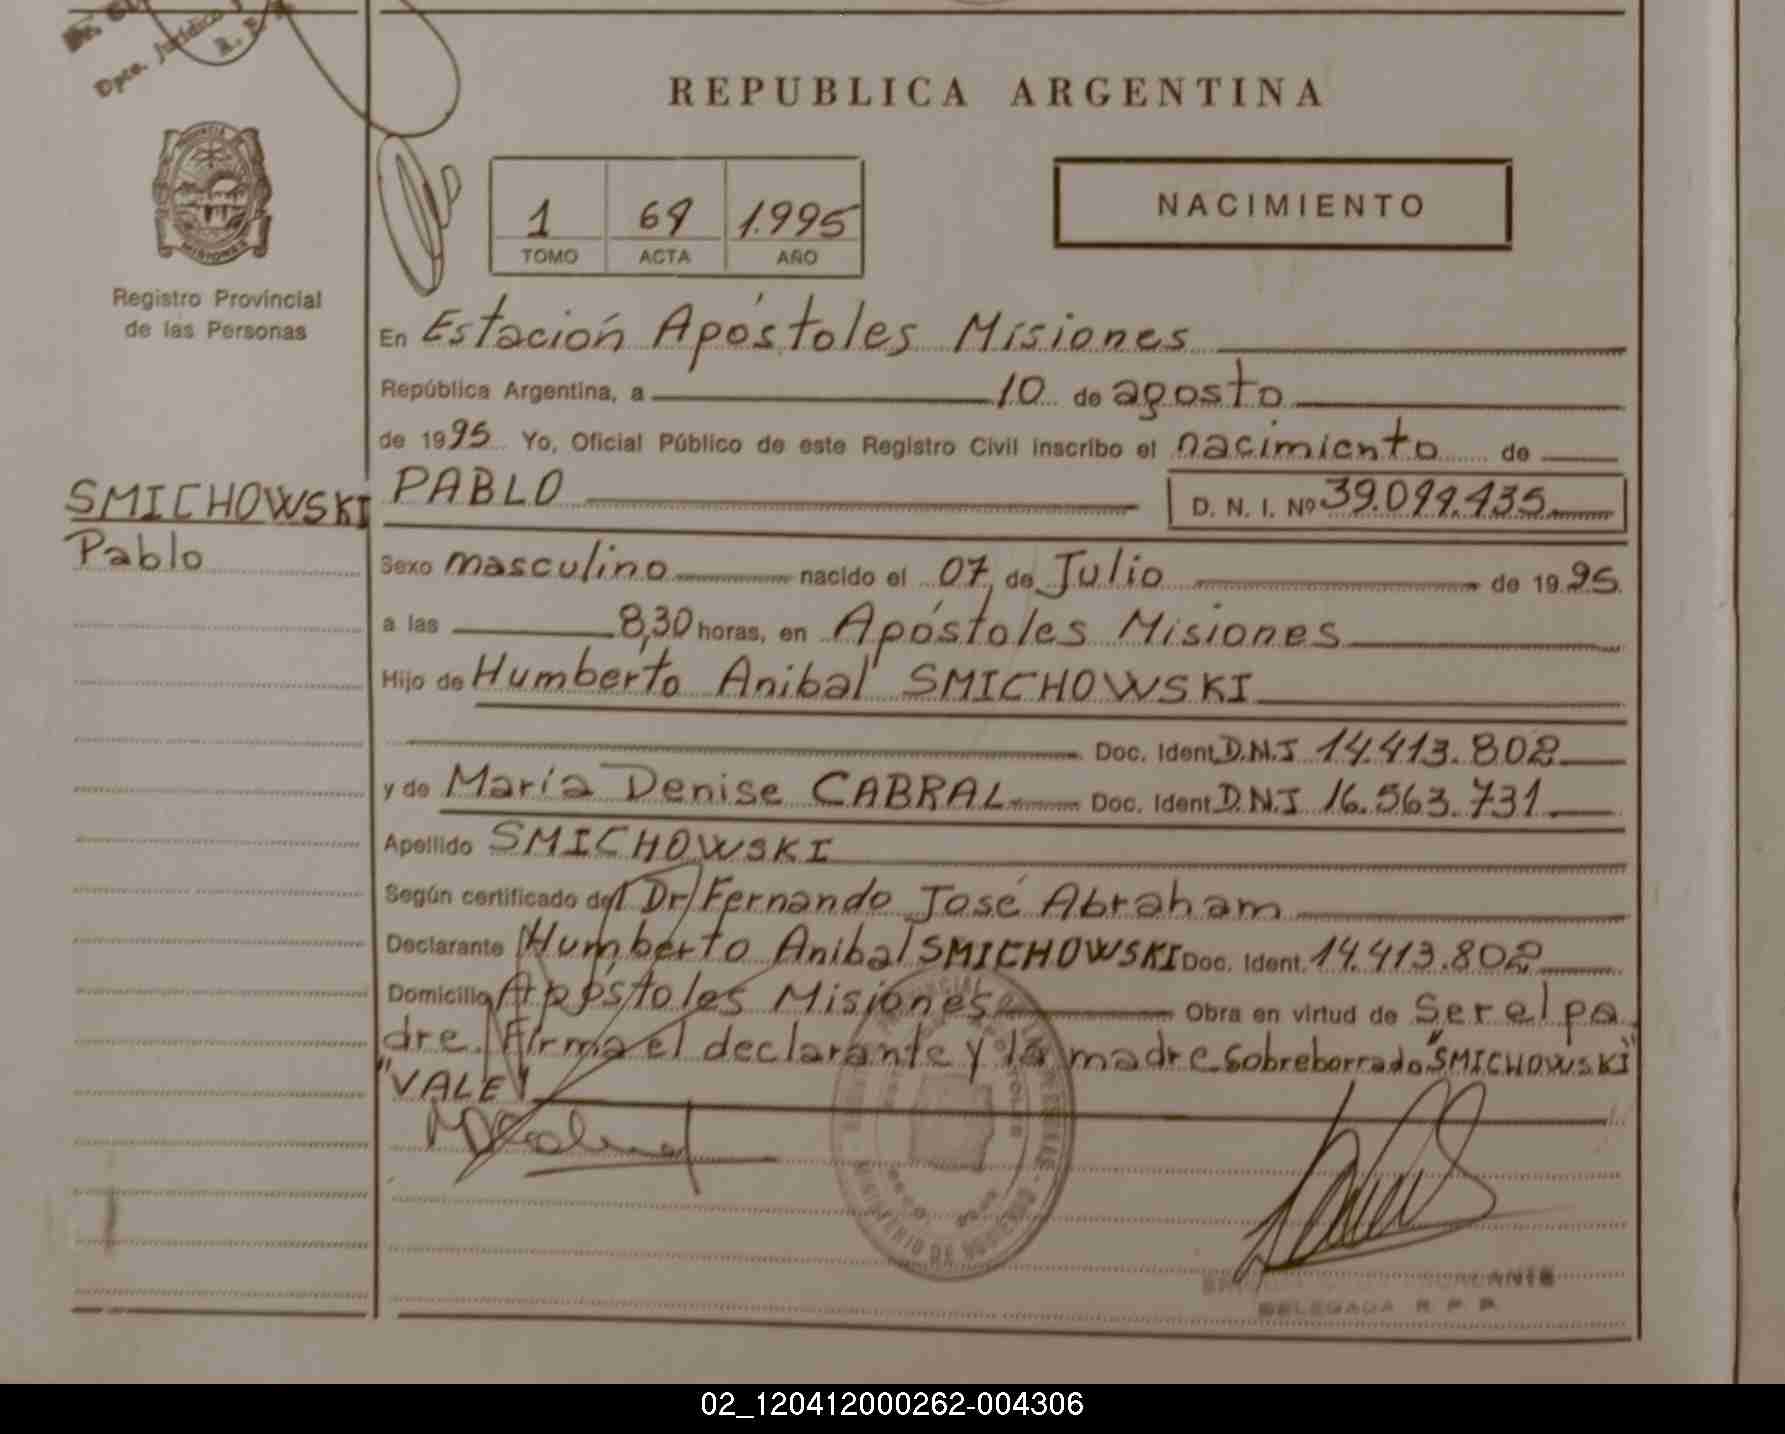 Dpto. Jurídico
REPUBLICA ARGENTINA
PROVINCIA
MISIONES
Registro Provincial
de las Personas
1 69 1.995
TOMO ACTA AÑO
NACIMIENTO
En Estación Apóstoles Misiones
República Argentina, a 10 de agosto
de 1995 Yo, Oficial Público de este Registro Civil inscribo el nacimiento de
SMICHOWSKI
Pablo
PABLO D. N. I. Nº 39.099.435
Sexo masculino nacido el 07 de Julio de 1995
a las 8,30 horas, en Apóstoles Misiones
Hijo de Humberto Anibal SMICHOWSKI
Doc. Ident. D.N.I 14.413.802
y de María Denise CABRAL Doc. Ident. D.N.I 16.563.731
Apellido SMICHOWSKI
Según certificado del Dr Fernando José Abraham
Declarante Humberto Anibal SMICHOWSKI Doc. Ident. 14.413.802
Domicilio Apóstoles Misiones Obra en virtud de ser el pa
dre. Firma el declarante y la madre sobreborrado "SMICHOWSKI"
"VALE"
MINISTERIO DE GOBIERNO
DELEGADA R. P. P.
02_120412000262-004306